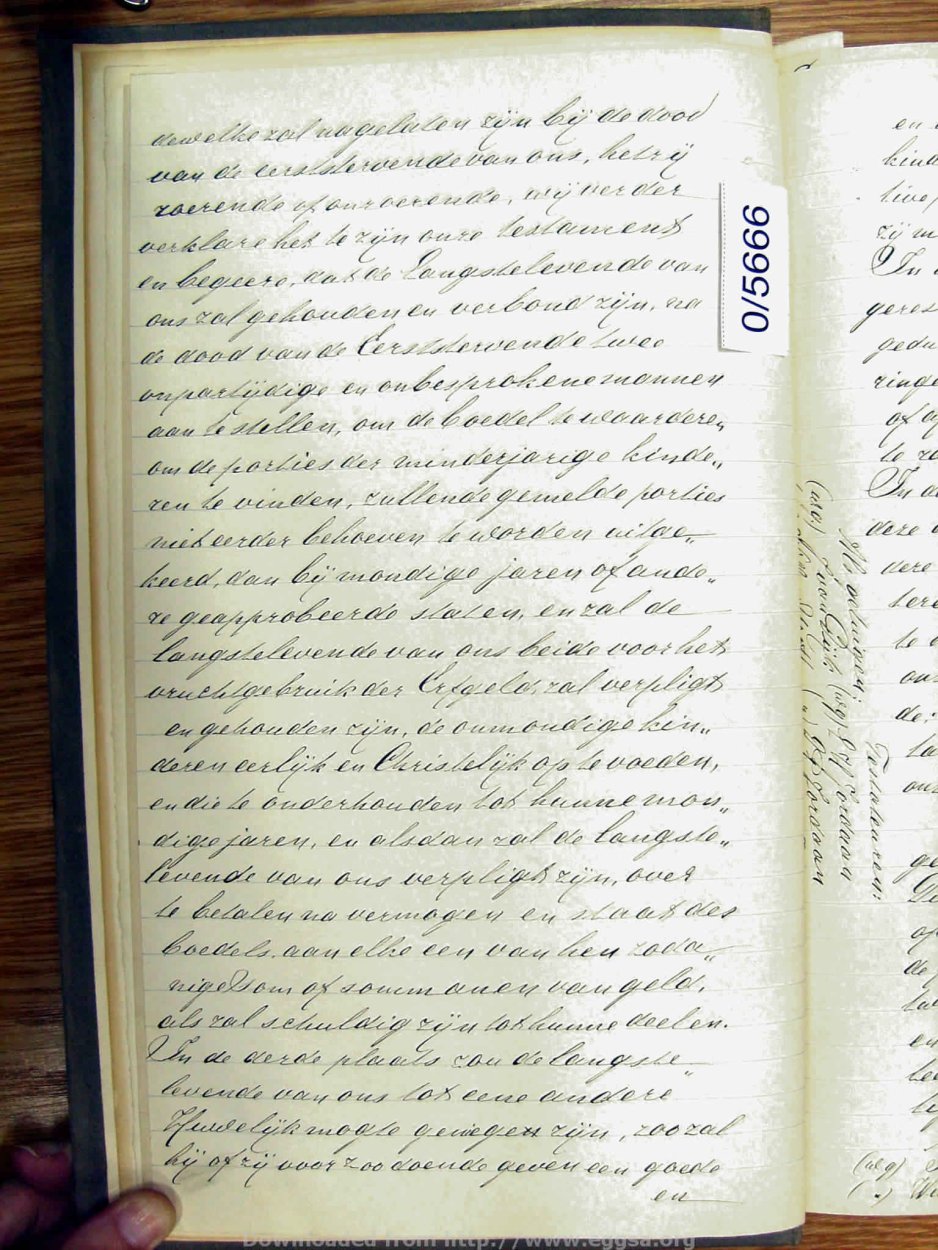 dewelke zal nagelaten zijn bij de dood
van de eerststervende van ons, hetzij
roerende of onroerende, wij verder
verklare het te zijn onze testament
en begeere, dat de Langstelevende van
ons zal gehouden en verbond zijn, na
de dood van de Eerststervende twee
onpartijdige en onbesprokene mannen
aan te stellen, om de boedel te waarderen
om de porties der minderjarige kinde„
ren te vinden, zullende gemelde porties
niet eerder behoeven te worden uitge„
keerd, dan bij mondige jaren of ande„
re geapprobeerde staten, en zal de
langstelevende van ons beide voor het
vruchtgebruik der Erfgeld, zal verpligt
en gehouden zijn, de onmondige kin„
deren eerlijk en Christelijk op te voeden,
en die te onderhouden tot hunne mon„
dige jaren, en alsdan zal de langste„
levende van ons verpligt zijn, over
te betalen na vermogen en staat des
boedels, aan elke een van hen zoda„
nige Som of sommanen van geld,
als zal schuldig zijn tot hunne deelen.
In de derde plaats zou de langste„
levende van ons tot eene andere
Huwelijk mogte genegen zijn, zoo zal
hij of zij voor zoo doende geven een goede
en
0/5666
Testateuren:
(weg) J van Dijk (weg) D H Jordaan
en
kind
zij
In
geres
gedu
ringe
of
te
In de
deze
dere
te
de
ons
ge
op
de
en
(weg)
Downloaded from http://www.eggsa.org